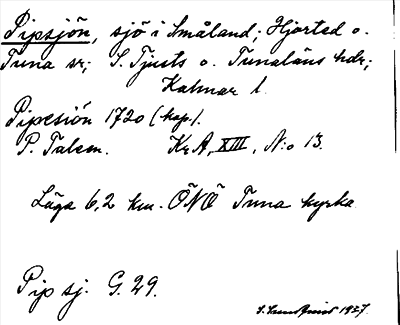 Pipsjön, sjö i Småland; Hjorted o.
Tuna sr; S. Tjusts o. Tunaläns hdr;
Kalmar l.
Pipesiön 1720 (kop.).
P. Talem. KrA, XIII, N:o 13.
Läge 6,2 km. ÖNÖ Tuna kyrka
Pip sj. G. 29.
1927.